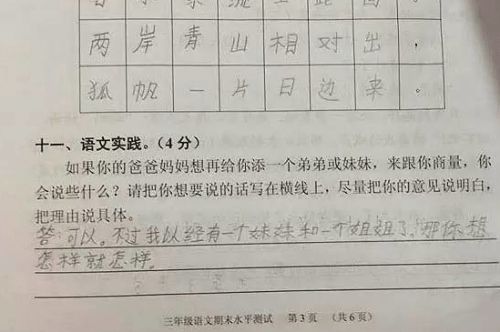 两岸青山相对出，
狐帆一片日边来。
十一、语文实践。（4分）
如果你的爸爸妈妈想再给你添一个弟弟或妹妹，来跟你商量，你
会说些什么？请把你想要说的话写在横线上，尽量把你的意见说明白，
把理由说具体。
答：可以。不过我以经有一个妹妹和一个姐姐了，哪你想
怎样就怎样。
三年级语文期末水平测试 第3页 （共6页）